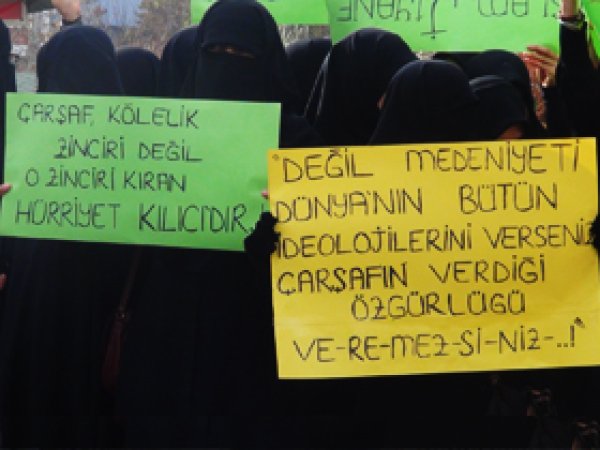 ÇARŞAF, KÖLELİK
ZİNCİRİ DEĞİL
O ZİNCİRİ KIRAN
HÜRRİYET KILICIDIR,!
"DEĞİL MEDENİYETİ
DÜNYA'NIN BÜTÜN
İDEOLOJİLERİNİ VERSENİZ
ÇARŞAFIN VERDİĞİ
ÖZGÜRLÜĞÜ
VE-RE-MEZ-Sİ-NİZ-..!"